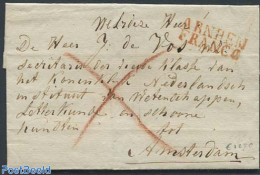 ARNHEM
FRANCO
De Heer J. de Vos
Secretaris der Vierde Klasse van
het Koninklijk Nederlandsch
Instituut van Wetenschappen,
Letterkunde en schoone
Kunsten
tot
Amsterdam
PostBeeld